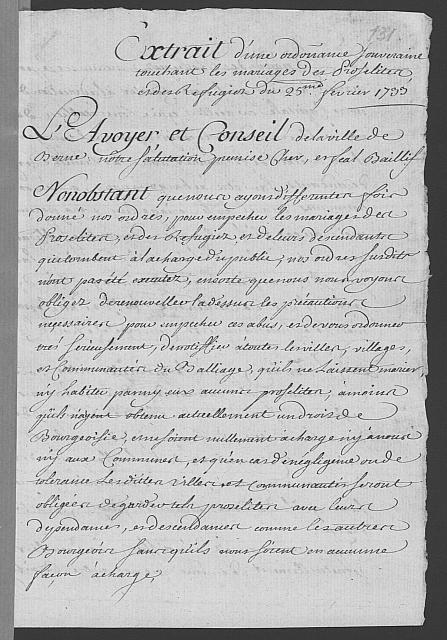 131.
Extrait d'une ordonnance souveraine
touchant les mariages des Proselites
et des Refugiés du 25me fevrier 1733
L'Avoyer et Conseil de la ville de
Berne, notre salutation premise Cher, et feal Baillif
Nonobstant que nous ayons differentes fois
donné nos ordres, pour empecher les mariages des
Proselites, et des Refugiez, et de leurs descendants
qui tombent à la charge du publiq, nos ordres susdits
n'ont pas été executez, en sorte que nous nous voyons
obligez de renouveller là dessus les précautions
necessaires pour empecher ces abus, et de vous ordonner
tres serieusement, de notiffier à toutes les villes, villages,
et Communautés du Balliage, qu'ils ne laissent marier,
ny habiter parmy eux aucuns proselites, à moins
qu'ils n'ayent obtenu actuellement un droit de
Bourgeoisie, et ne soient nullement a charge ny à nous
ny aux Communes, et qu'en cas de négligence ou de
tolerance Lesdittes Villes et Communautés seront
obligées de garder tels proselites avec leurs
dependances, et descendances comme les autres
Bourgeois sans qu'ils nous soient en aucune
façon à charge,